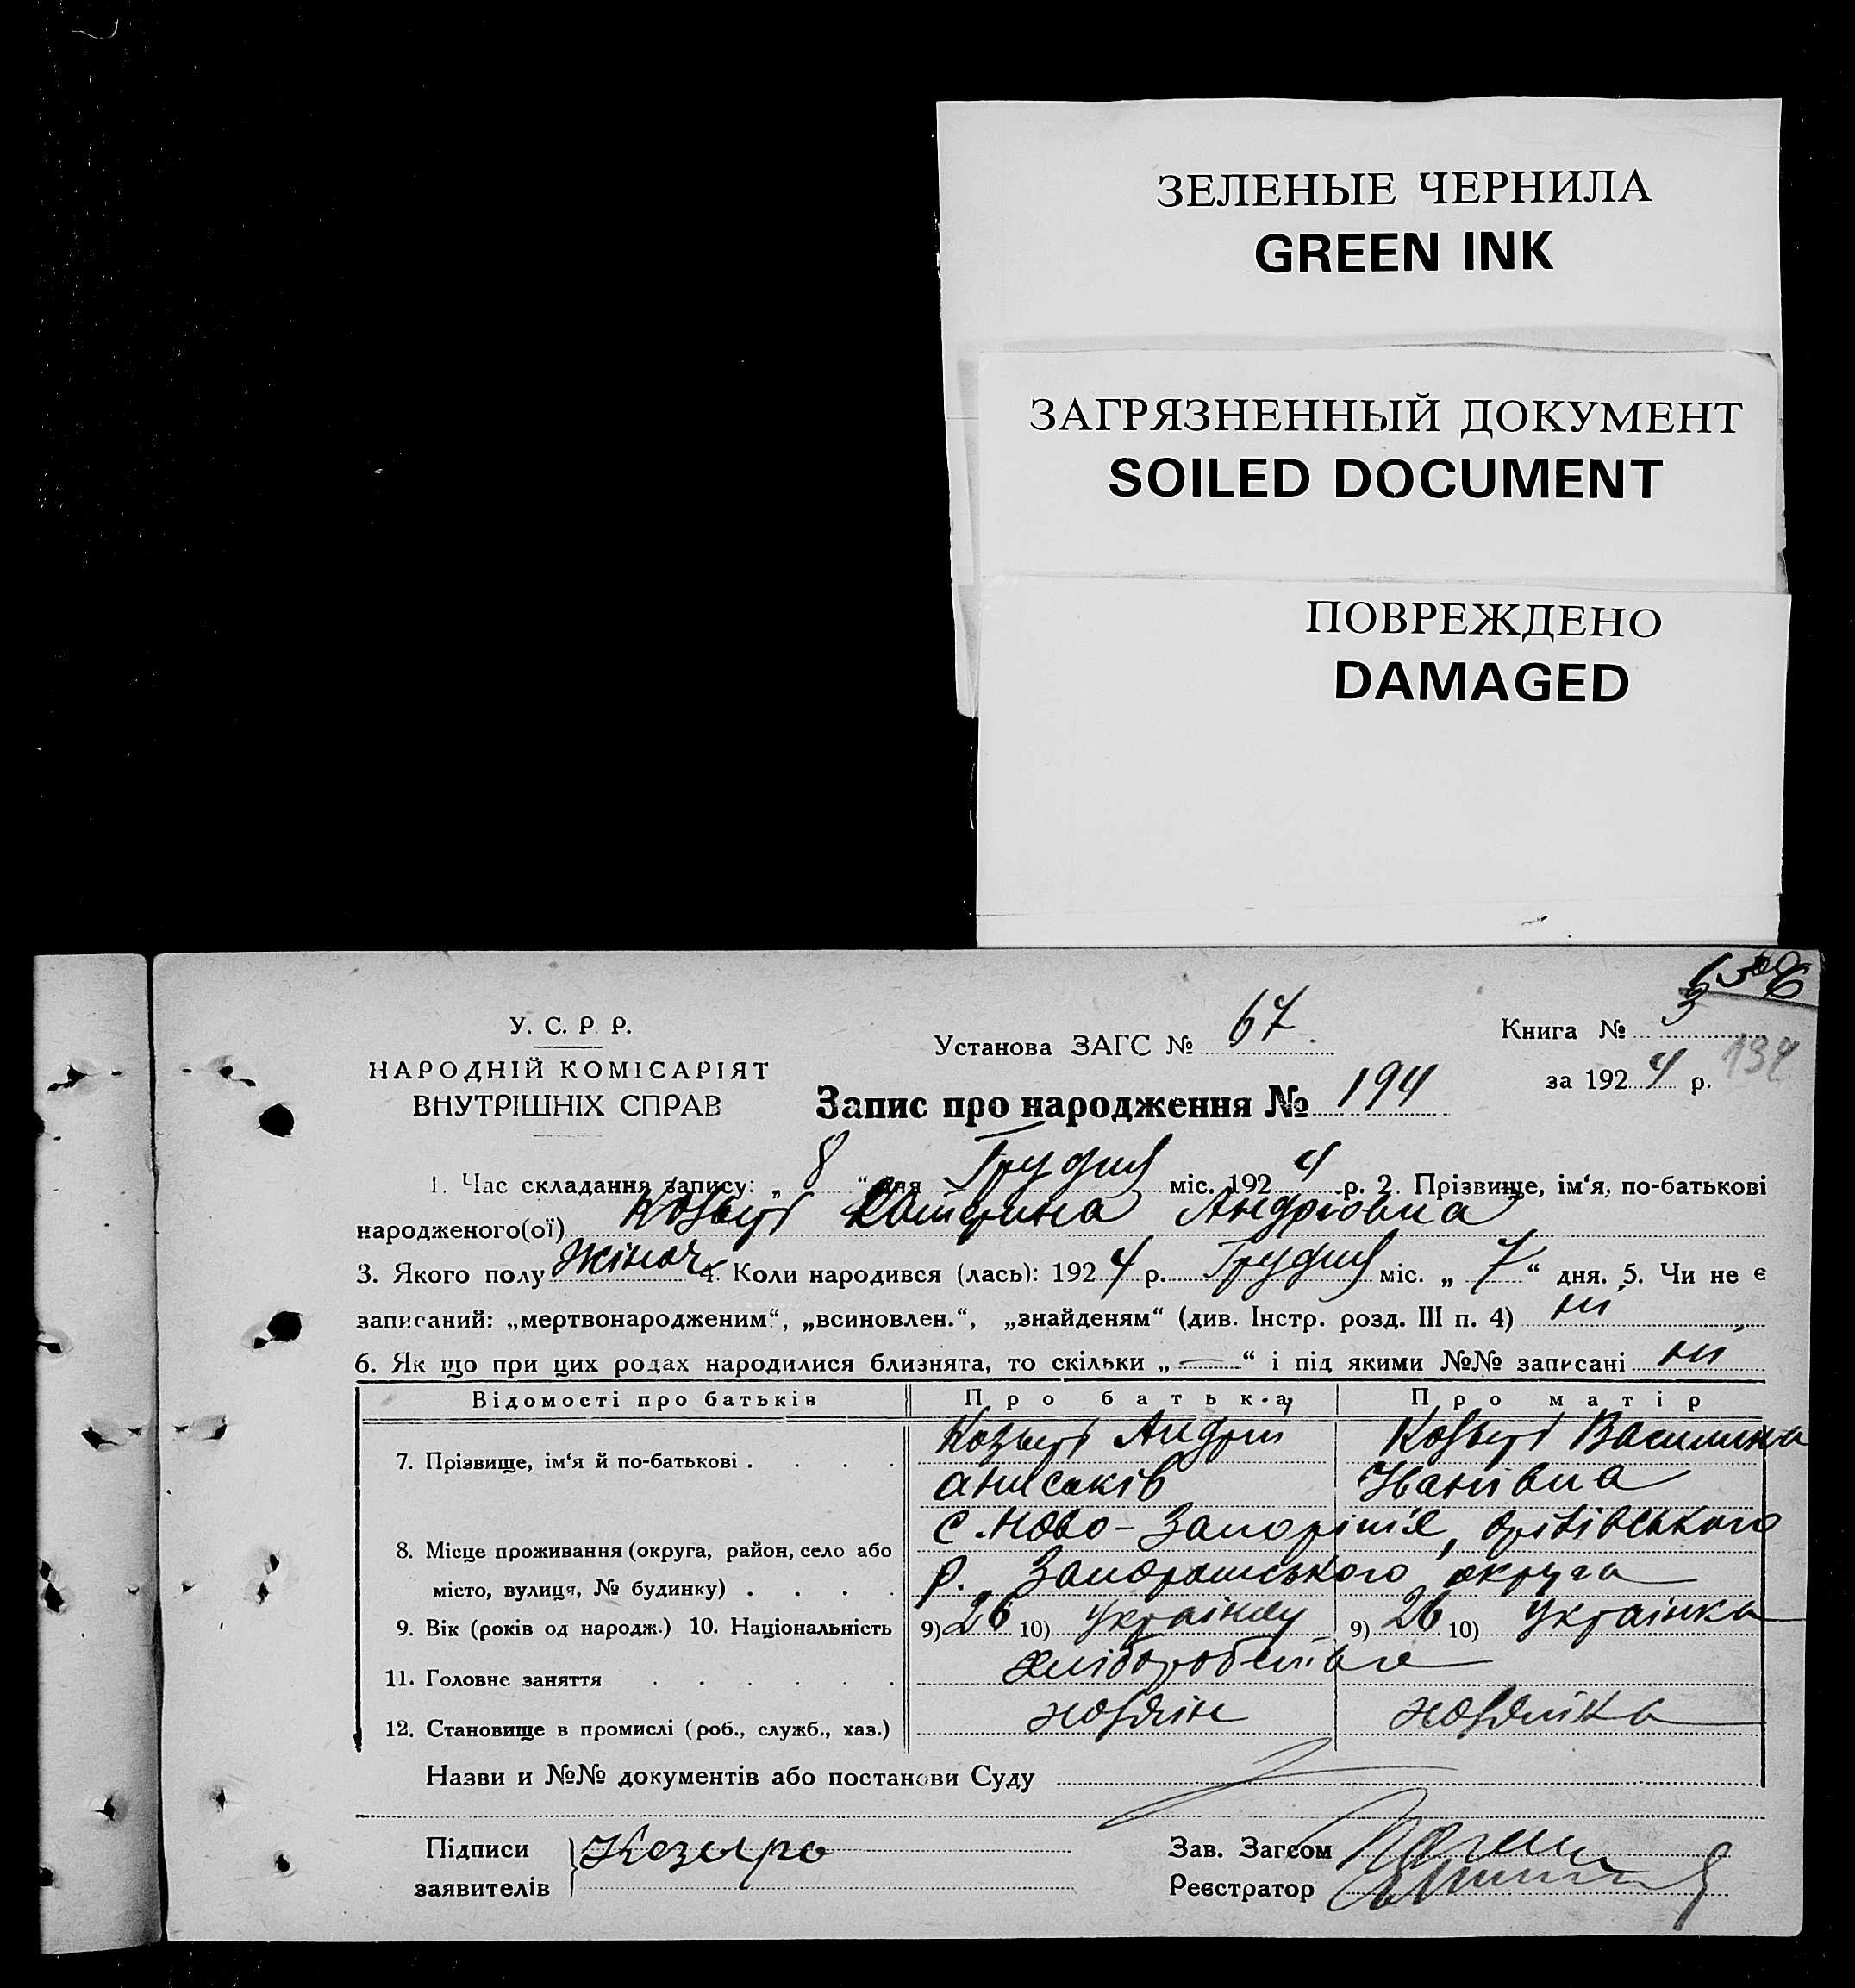 ЗЕЛЕНЫЕ ЧЕРНИЛА
GREEN INK
ЗАГРЯЗНЕННЫЙ ДОКУМЕНТ
SOILED DOCUMENT
ПОВРЕЖДЕНО
DAMAGED
У. С. Р. Р.
НАРОДНІЙ КОМІСАРІЯТ
ВНУТРІШНІХ СПРАВ
Установа ЗАГС № 67.
Книга № 3
за 1924 р. 134
Запис про народження № 194
1. Час складання запису: „ 8 “ дня Грудня міс. 1924 р. 2. Прізвище, ім‘я, по-батькові
народженого(ої) Козирь Катерина Андріовна
3. Якого полу Жіноч 4. Коли народився (лась): 1924 р. Грудня міс. „ 7 “ дня. 5. Чи не є
записаний: „мертвонародженим“, „всиновлен.“, „знайденям“ (див. Інстр. розд. III п. 4) ні
6. Як що при цих родах народилися близнята, то скільки „ — “ і під якими №№ записані ні
Відомості про батьків Про батька Про матір
Козирь Андрій Козирь Василина
7. Прізвище, ім‘я й по-батькові . . . .
Іванівна
с. Ново-Запоріжжя,
8. Місце проживання (округа, район, село або
місто, вулиця, № будинку) . . . . р. Запорожського округа
9. Вік (років од народж.) 10. Національність 9) 26 10) Українец 9) 26 10) Українка
11. Головне заняття . . . . . . хліборобство
12. Становище в промислі (роб., служб., хаз.) хозяін хозяйка
Назви и №№ документів або постанови Суду
Підписи Козыро Зав. Загсом
заявителів Реєстратор